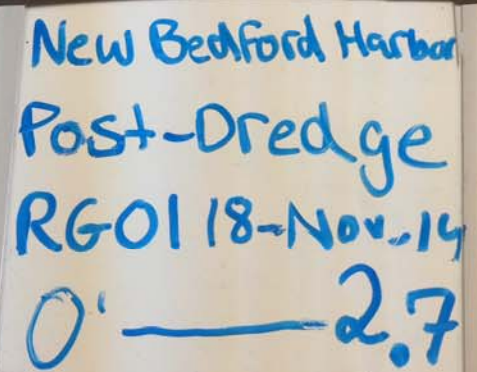 New Bedford Harbor
Post-Dredge
RG01 18-Nov-14
0' — 2.7